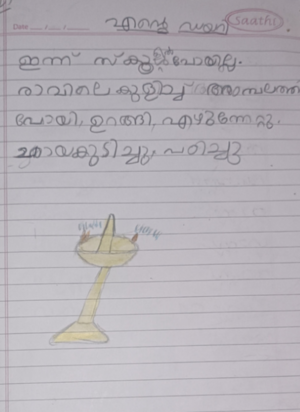 Date
എൻ്റെ ഡയറി
Saathi
ഇന്ന് സ്കൂളിൽ പോയില്ല.
രാവിലെ കുളിച്ച് അമ്പലത്ത
പോയി, ഉറങ്ങി, എഴുന്നേറ്റു,
ചായകുടിച്ചു, പഠിച്ചു